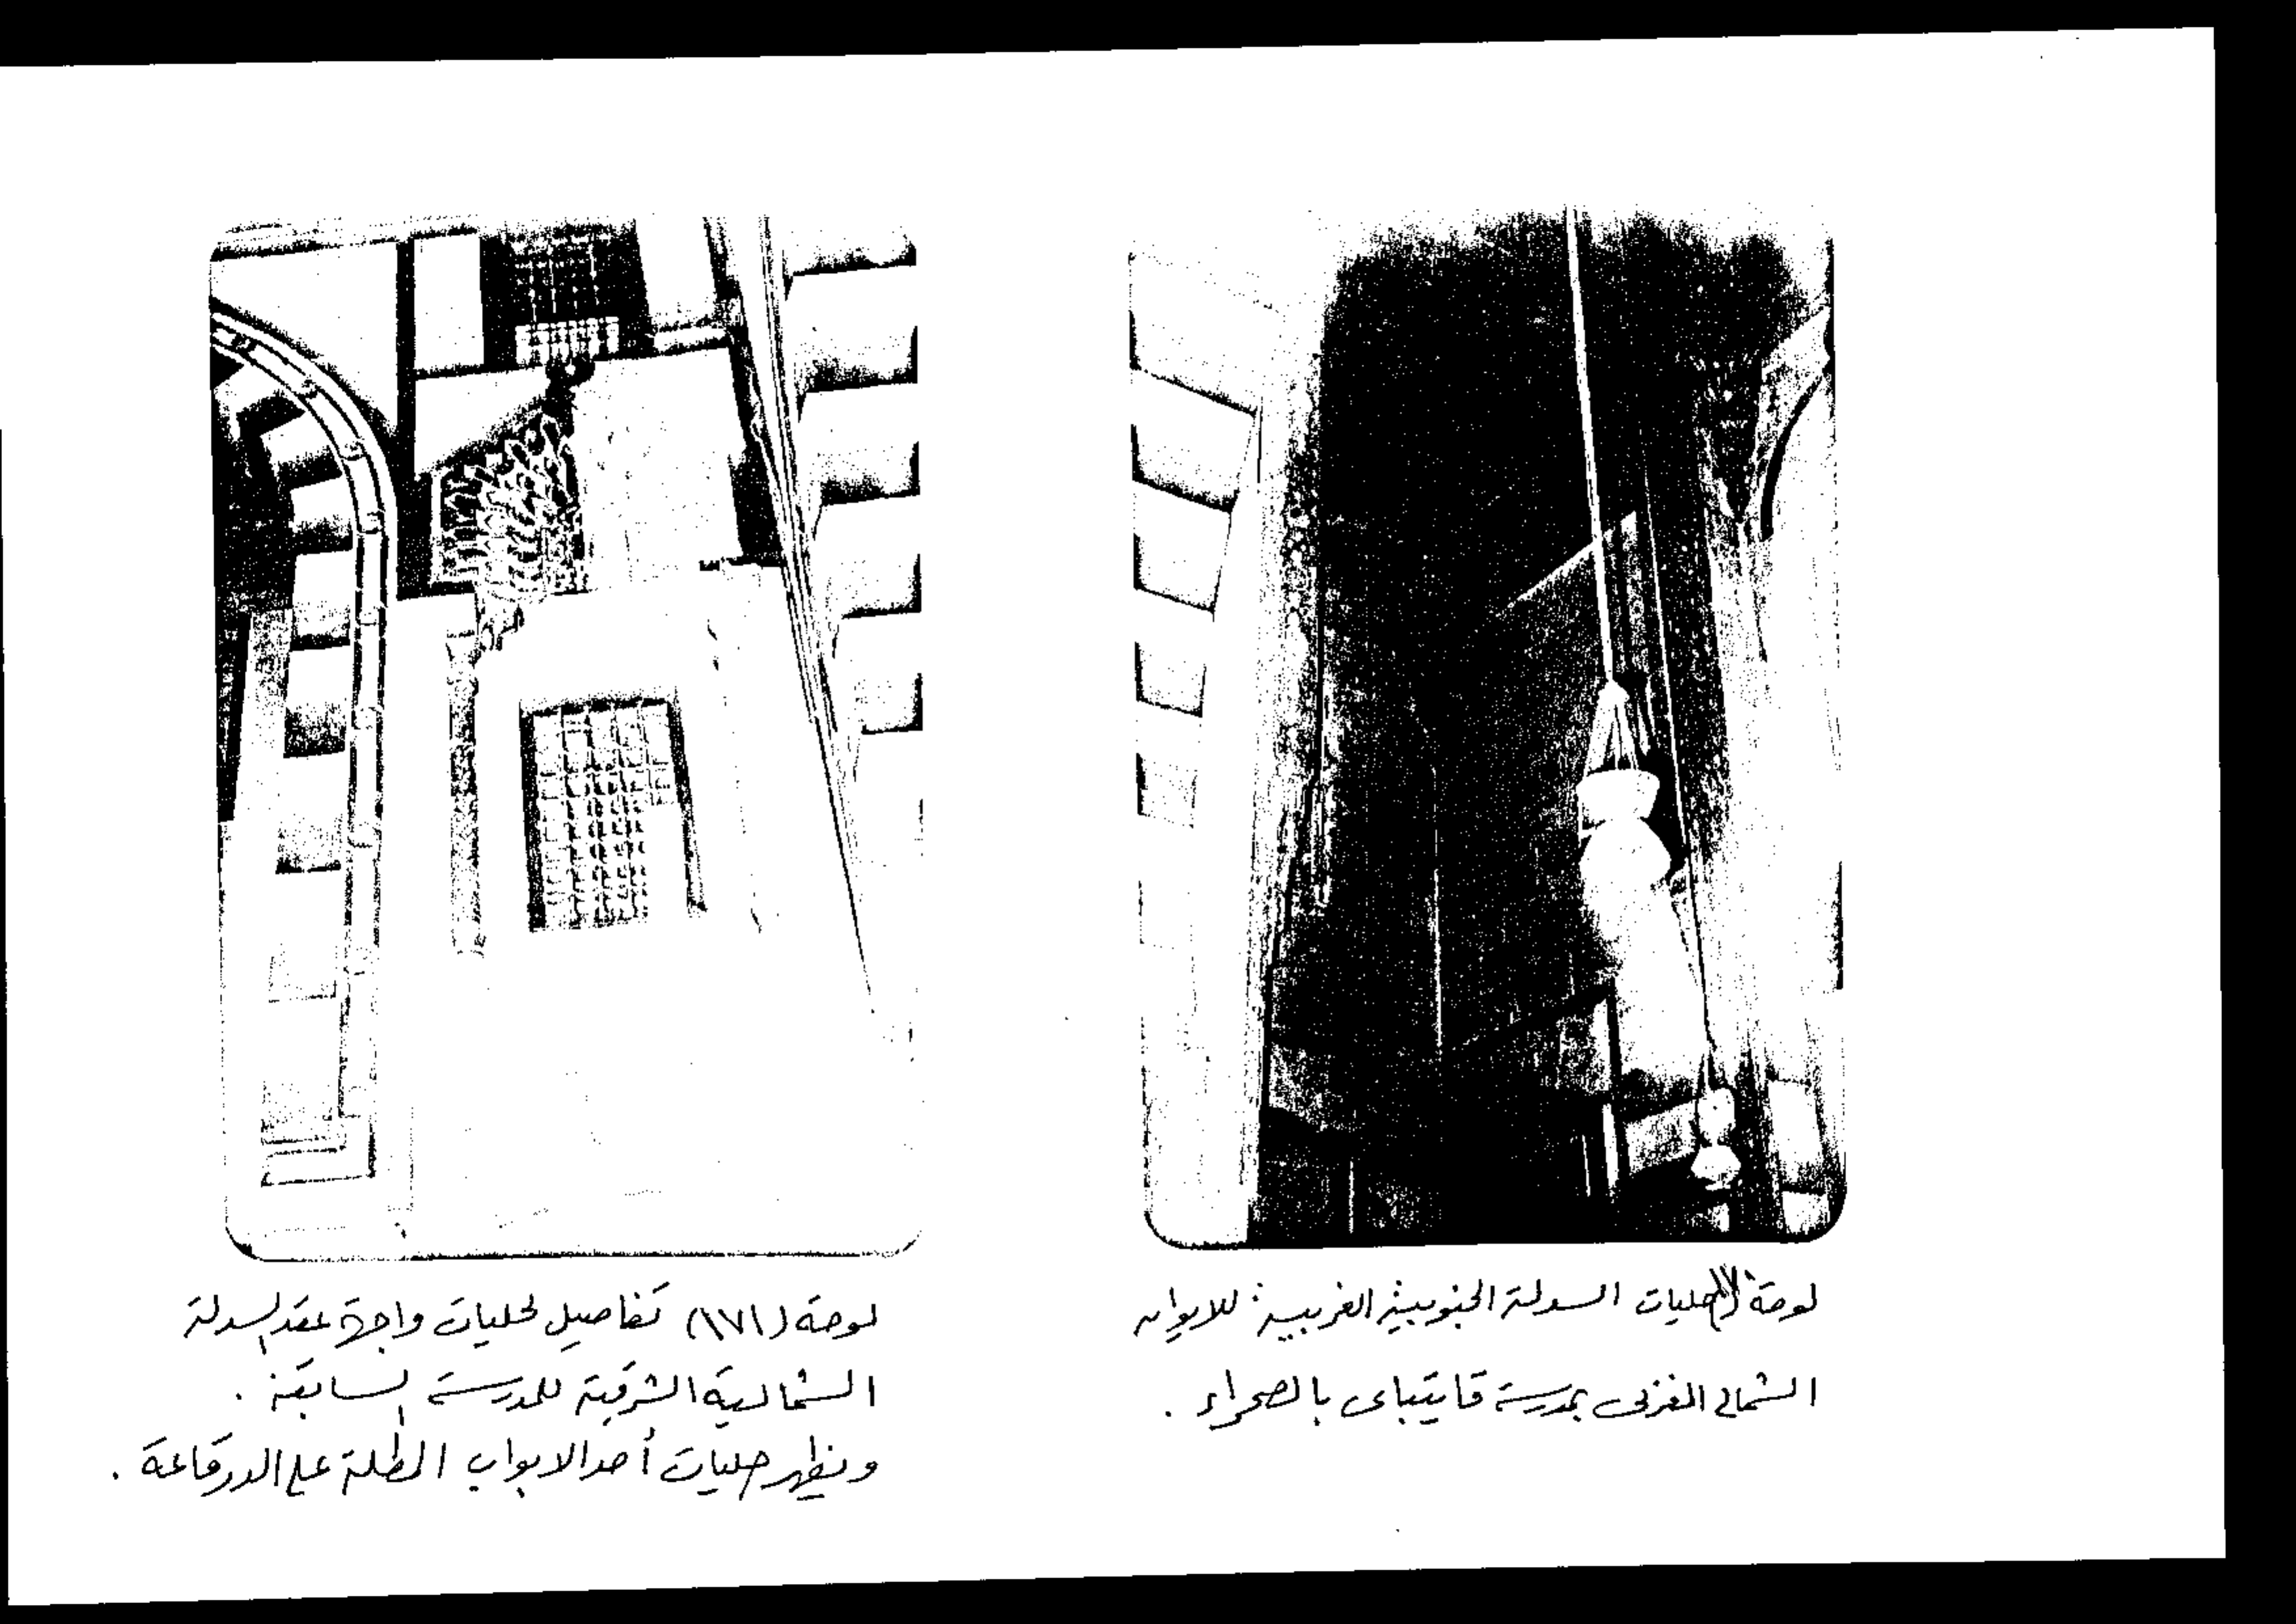 لوحة حليات السدلة الجنوبية الغربية للايوان
الشمالى الغربى بمدرسة قايتباى بالصحراء .
لوحة (١٧١) تفاصيل لحليات واجهة عقد السدلة
الشمالية الشرقية للمدرسة السابقة .
ونظهر حليات أحد الابواب المطلة على الدرقاعة .